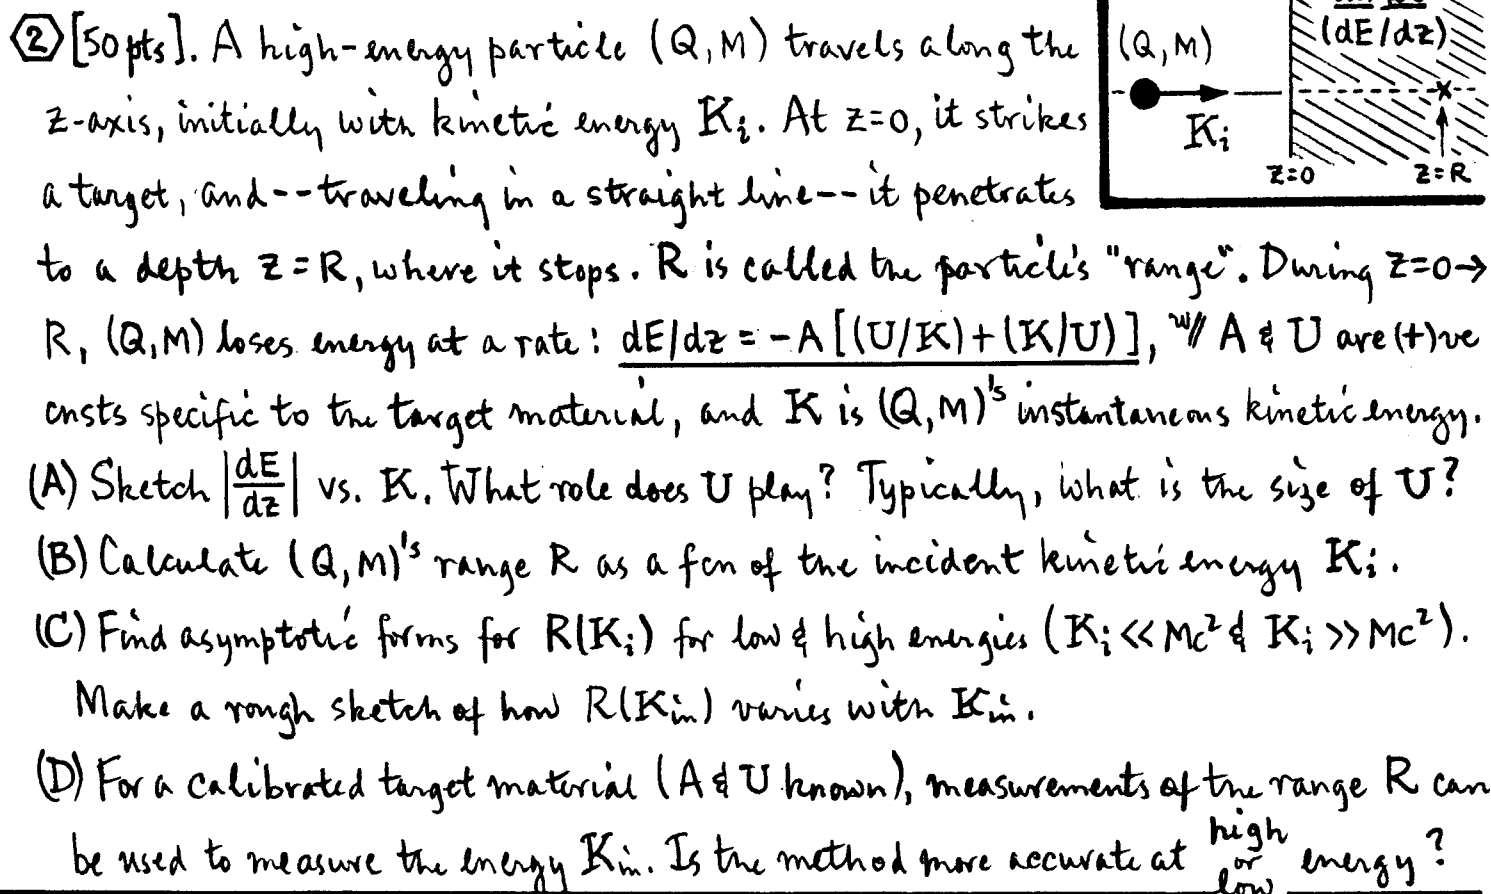 ② [50 pts]. A high-energy particle (Q,M) travels along the
z-axis, initially with kinetic energy Kᵢ. At z=0, it strikes
a target, and--traveling in a straight line--it penetrates
to a depth z=R, where it stops. R is called the particle's "range". During z=0→
R, (Q,M) loses energy at a rate: dE/dz = -A[(U/K)+(K/U)], w// A & U are (+)ve
cnsts specific to the target material, and K is (Q,M)'s instantaneous kinetic energy.
(A) Sketch |dE/dz| vs. K. What role does U play? Typically, what is the size of U?
(B) Calculate (Q,M)'s range R as a fcn of the incident kinetic energy Kᵢ.
(C) Find asymptotic forms for R(Kᵢ) for low & high energies (Kᵢ << Mc² & Kᵢ >> Mc²).
Make a rough sketch of how R(Kin) varies with Kin.
(D) For a calibrated target material (A & U known), measurements of the range R can
be used to measure the energy Kin. Is the method more accurate at high or low energy?
(dE/dz)
(Q,M)
Kᵢ
z=0
z=R